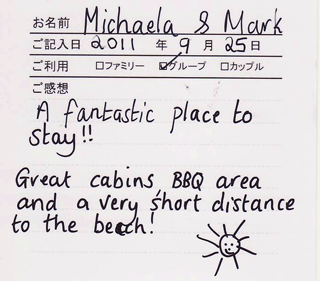 お名前 Michaela & Mark
ご記入日 2011 年 9 月 25日
ご利用 □ファミリー ☑グループ □カップル
ご感想
A fantastic place to
stay!!
Great cabins, BBQ area
and a very short distance
to the beach!